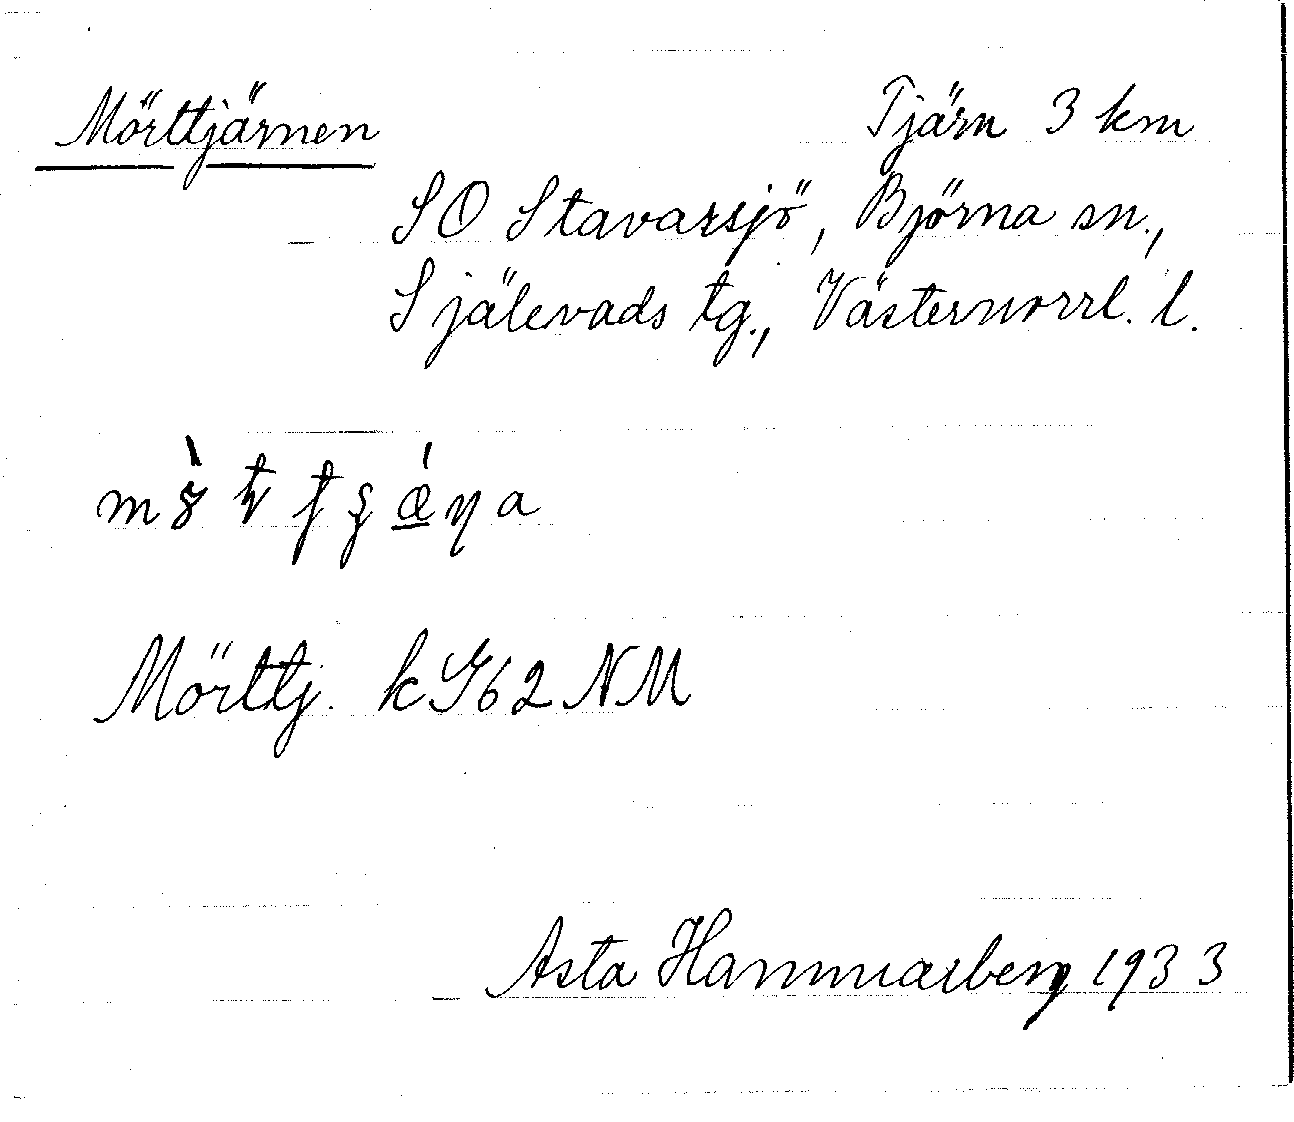 Mörttjärnen Tjärn 3 km
SO Stavarsjö, Björna sn.,
Själevads tg., Västernorrl. l.
Mörttj. k G62 NM
Asta Hammarberg 1933